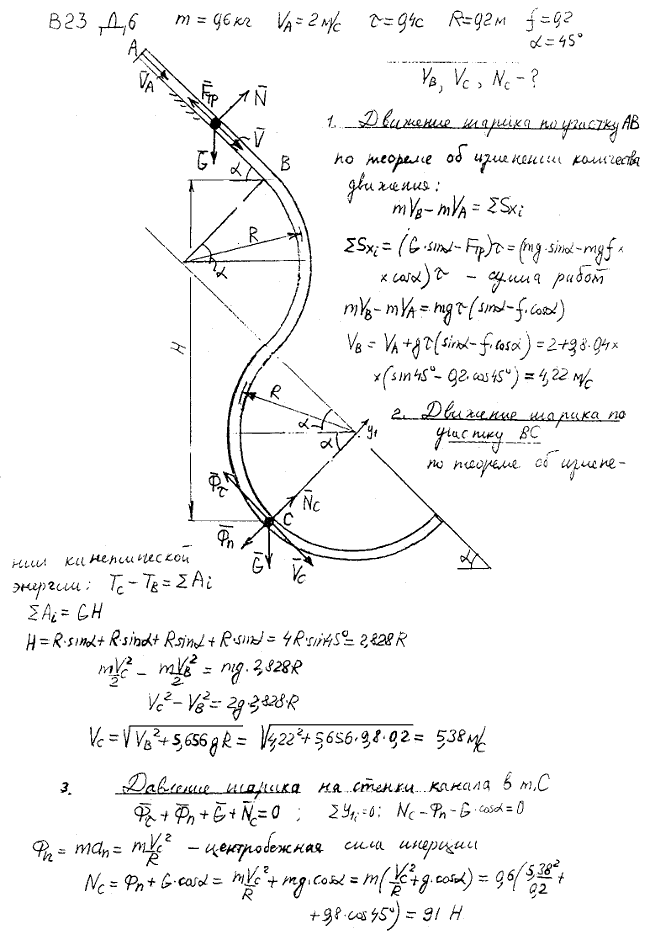 В23 Д6 m = 0,6кг V_A = 2 м/с τ = 0,4с R = 0,2м f = 0,2
α = 45°
V_B, V_C, N_C - ?
A
V̄_A
F̄_ТР
N̄
V̄
Ḡ
α
B
R
α
H
R
α
α
y₁
Φ̄_τ
N̄_C
C
Φ̄_n
Ḡ
V̄_C
α
1. Движение шарика по участку АВ
по теореме об изменении количества
движения:
mV_B - mV_A = ΣSx_i
ΣSx_i = (G·sinα - F_ТР)τ = (mg·sinα - mgf×
×cosα)τ - сумма работ
mV_B - mV_A = mgτ(sinα - f·cosα)
V_B = V_A + gτ(sinα - f·cosα) = 2+9,8·0,4×
×(sin45° - 0,2·cos45°) = 4,22 м/с
2. Движение шарика по
участку ВС
по теореме об измене-
нии кинетической
энергии: T_C - T_B = ΣA_i
ΣA_i = GH
H = R·sinα + R·sinα + R·sinα + R·sinα = 4R·sin45° = 2,828R
mV_C²/2 - mV_B²/2 = mg·2,828R
V_C² - V_B² = 2g·2,828·R
V_C = √(V_B² + 5,656gR) = √(4,22² + 5,656·9,8·0,2) = 5,38 м/с
3. Давление шарика на стенки канала в т.С
Φ̄_τ + Φ̄_n + Ḡ + N̄_C = 0 ; Σy₁ᵢ = 0: N_C - Φ_n - G·cosα = 0
Φ_n = ma_n = m V_C²/R - центробежная сила инерции
N_C = Φ_n + G·cosα = mV_C²/R + mg·cosα = m(V_C²/R + g·cosα) = 0,6(5,38²/0,2 +
+ 9,8·cos45°) = 91 Н